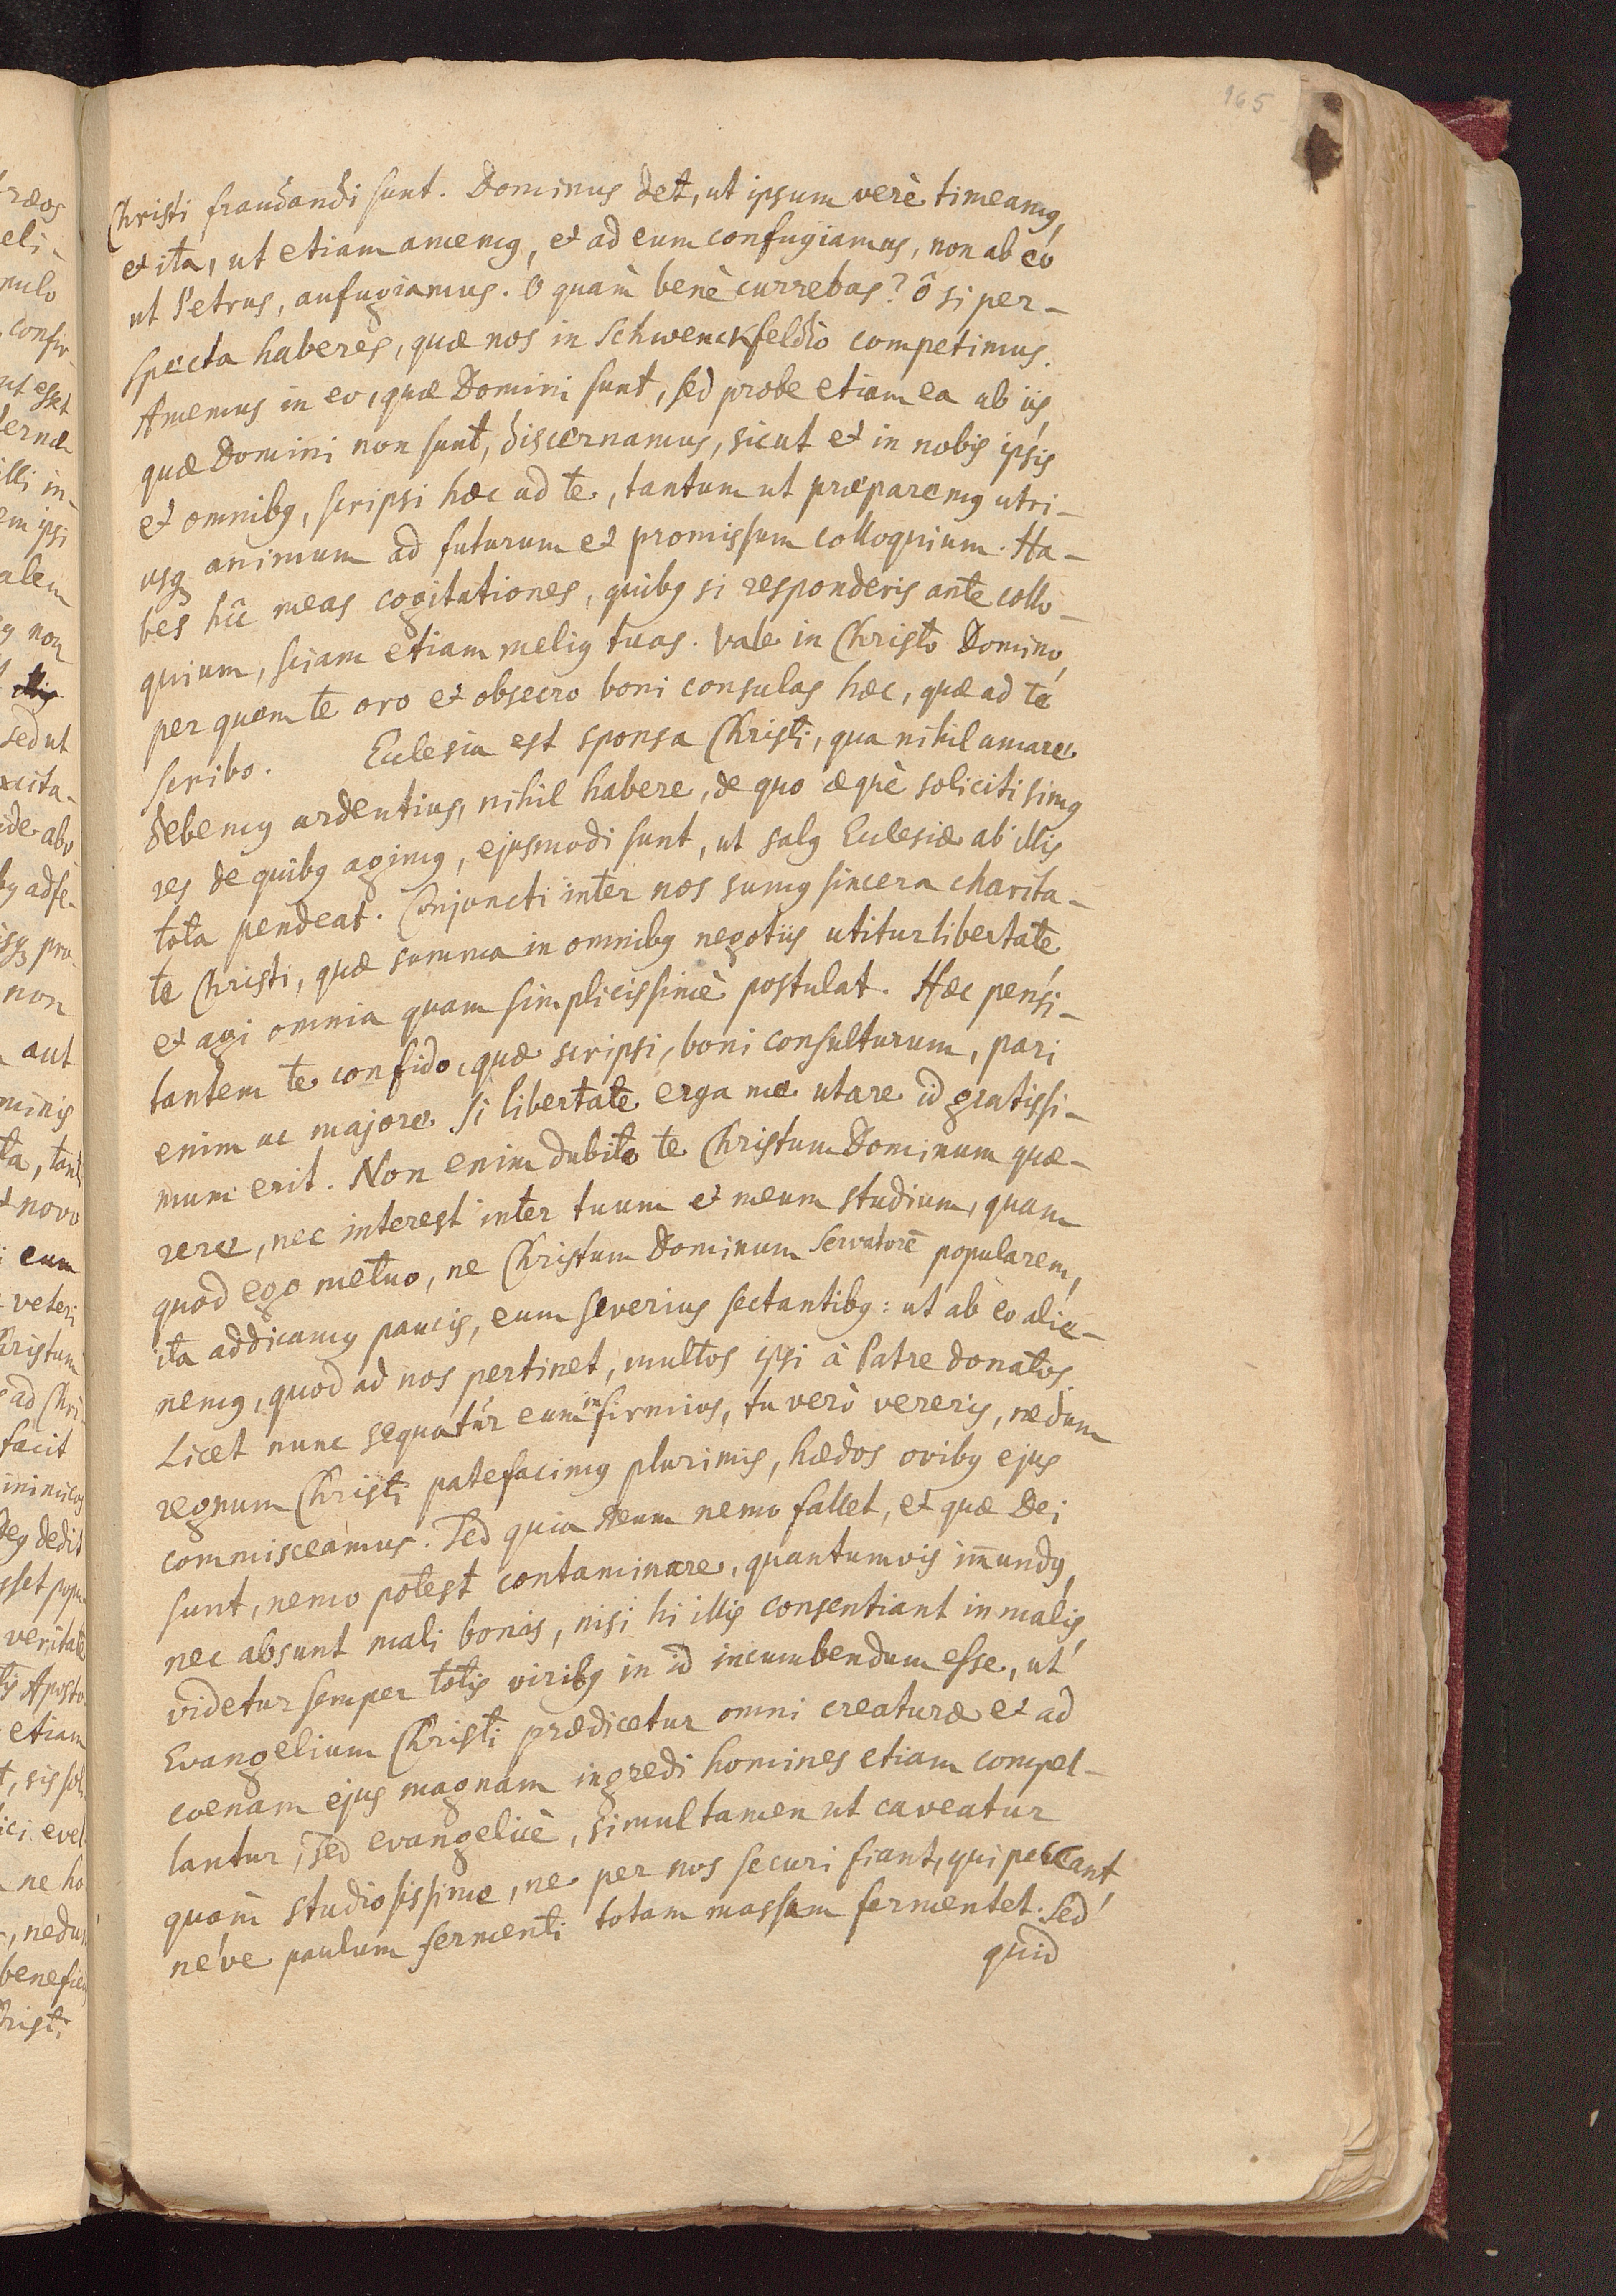 165
Christi fraudandi sunt. Dominus det, ut ipsum verè timeamꝰ,
et ita, ut etiam amemꝰ, et ad eum confugiamus, non ab eo
ut Petrus, aufugiamus. O quàm benè currebas? ô si per-
specta haberes, quæ nos in Schwenckfeldio competimus.
Amemus in eo, quæ Domini sunt, sed probe etiam ea ab iis,
quæ Domini non sunt, discernamus, sicut et in nobis ipsis
et omnibꝰ, scripsi hæc ad te, tantum ut præparemꝰ utri-
usqꝫ animum ad futurum et promissum colloquium. Ha-
bes hîc meas cogitationes, quibꝰ si responderis ante collo-
quium, sciam etiam meliꝰ tuas. Vale in Christo Domino,
per quem te oro et obsecro boni consulas hæc, quæ ad te
scribo. Eclesia est sponsa Christi, qua nihil amare
debemꝰ ardentius, nihil habere, de quo æquè soliciti simꝰ
res de quibꝰ agimꝰ, ejusmodi sunt, ut salꝰ Eclesiæ ab illis
tota pendeat. Conjuncti inter nos sumꝰ sincera charita-
te Christi, quæ summa in omnibꝰ negotiis utitur libertate
et agi omnia quam simplicissimè postulat. Hæc pensi-
tantem te confido, quæ scripsi, boni consulturum, pari
enim ac majore si libertate erga me utare id gratissi-
mum erit. Non enim dubito te Christum Dominum quæ-
rere, nec interest inter tuum et meum studium, quam
quod ego metuo, ne Christum Dominum Servatorē popularem,
ita addicamꝰ paucis, eum severius sectantibꝰ: ut ab eo alie-
nemꝰ, quod ad nos pertinet, multos ipsi à Patre donatos.
Licet nunc sequatur eum infirmius, tu verò vereris, ne dum
regnum Christi patefacimꝰ plurimis, hædos ovibꝰ ejus
commisceamus. Sed quia Deum nemo fallet, et quæ Dei
sunt, nemo potest contaminare, quantumvis im̄undꝰ,
nec absunt mali bonis, nisi hi illis consentiant in malis,
videtur semper totis viribꝰ in id incumbendum esse, ut
Evangelium Christi prædicetur omni creaturæ et ad
coenam ejus magnam ingredi homines etiam compel-
lantur, sed evangelicè, simul tamen ut caveatur
quàm studiosissime, ne per nos securi fiant, qui peccant,
neve paulum fermenti totam massam fermentet. Sed
quid